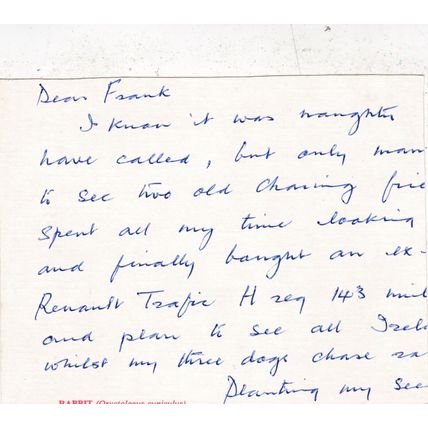 Dear Frank
I know it was naught
have called, but only man
to see two old Charing frie
spent all my time looking
and finally bought an ex-
Renault Trafic H reg 143 mil
and plan to see all Irel
whilst my three dogs chase ra
Planting my see
RABBIT (Oryctolagus cuniculus)